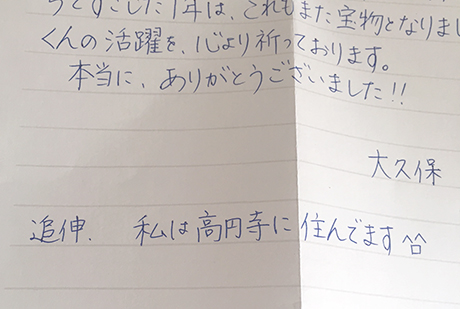 うとすごした1年は、これもまた宝物となりまし
くんの活躍を、心より祈っております。
本当に、ありがとうございました!!
大久保
追伸. 私は高円寺に住んでます ^□^